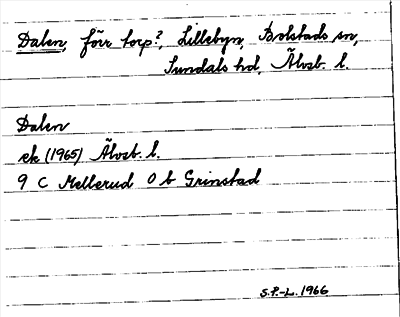 Dalen, förr torp?, Lillebyn, Bolstads sn,
Sundals hd, Älvsb. l.
Dalen
ek (1965) Älvsb. l.
9 C Mellerud 0 b Grinstad
S.F.-L. 1966